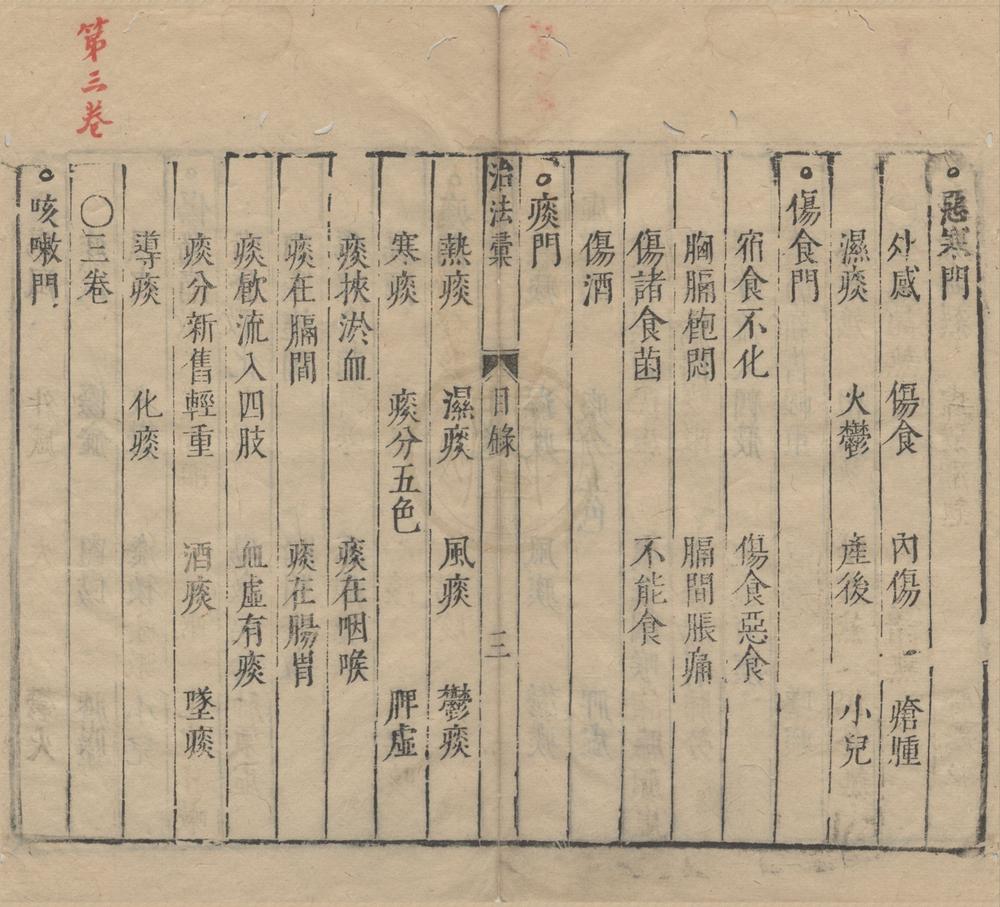 ○惡寒門
外感　傷食　內傷　瘡腫
濕痰　火鬱　產後　小兒
○傷食門
宿食不化　傷食惡食
胸膈飽悶　膈間脹痛
傷諸食菌　不能食
傷酒
○痰門
治法彙　目錄　三
熱痰　濕痰　風痰　鬱痰
寒痰　痰分五色　脾虛
痰挾淤血　痰在咽喉
痰在膈間　痰在腸胃
痰飲流入四肢　血虛有痰
痰分新舊輕重　酒痰　墜痰
導痰　化痰
第三卷
〇三卷
○咳嗽門